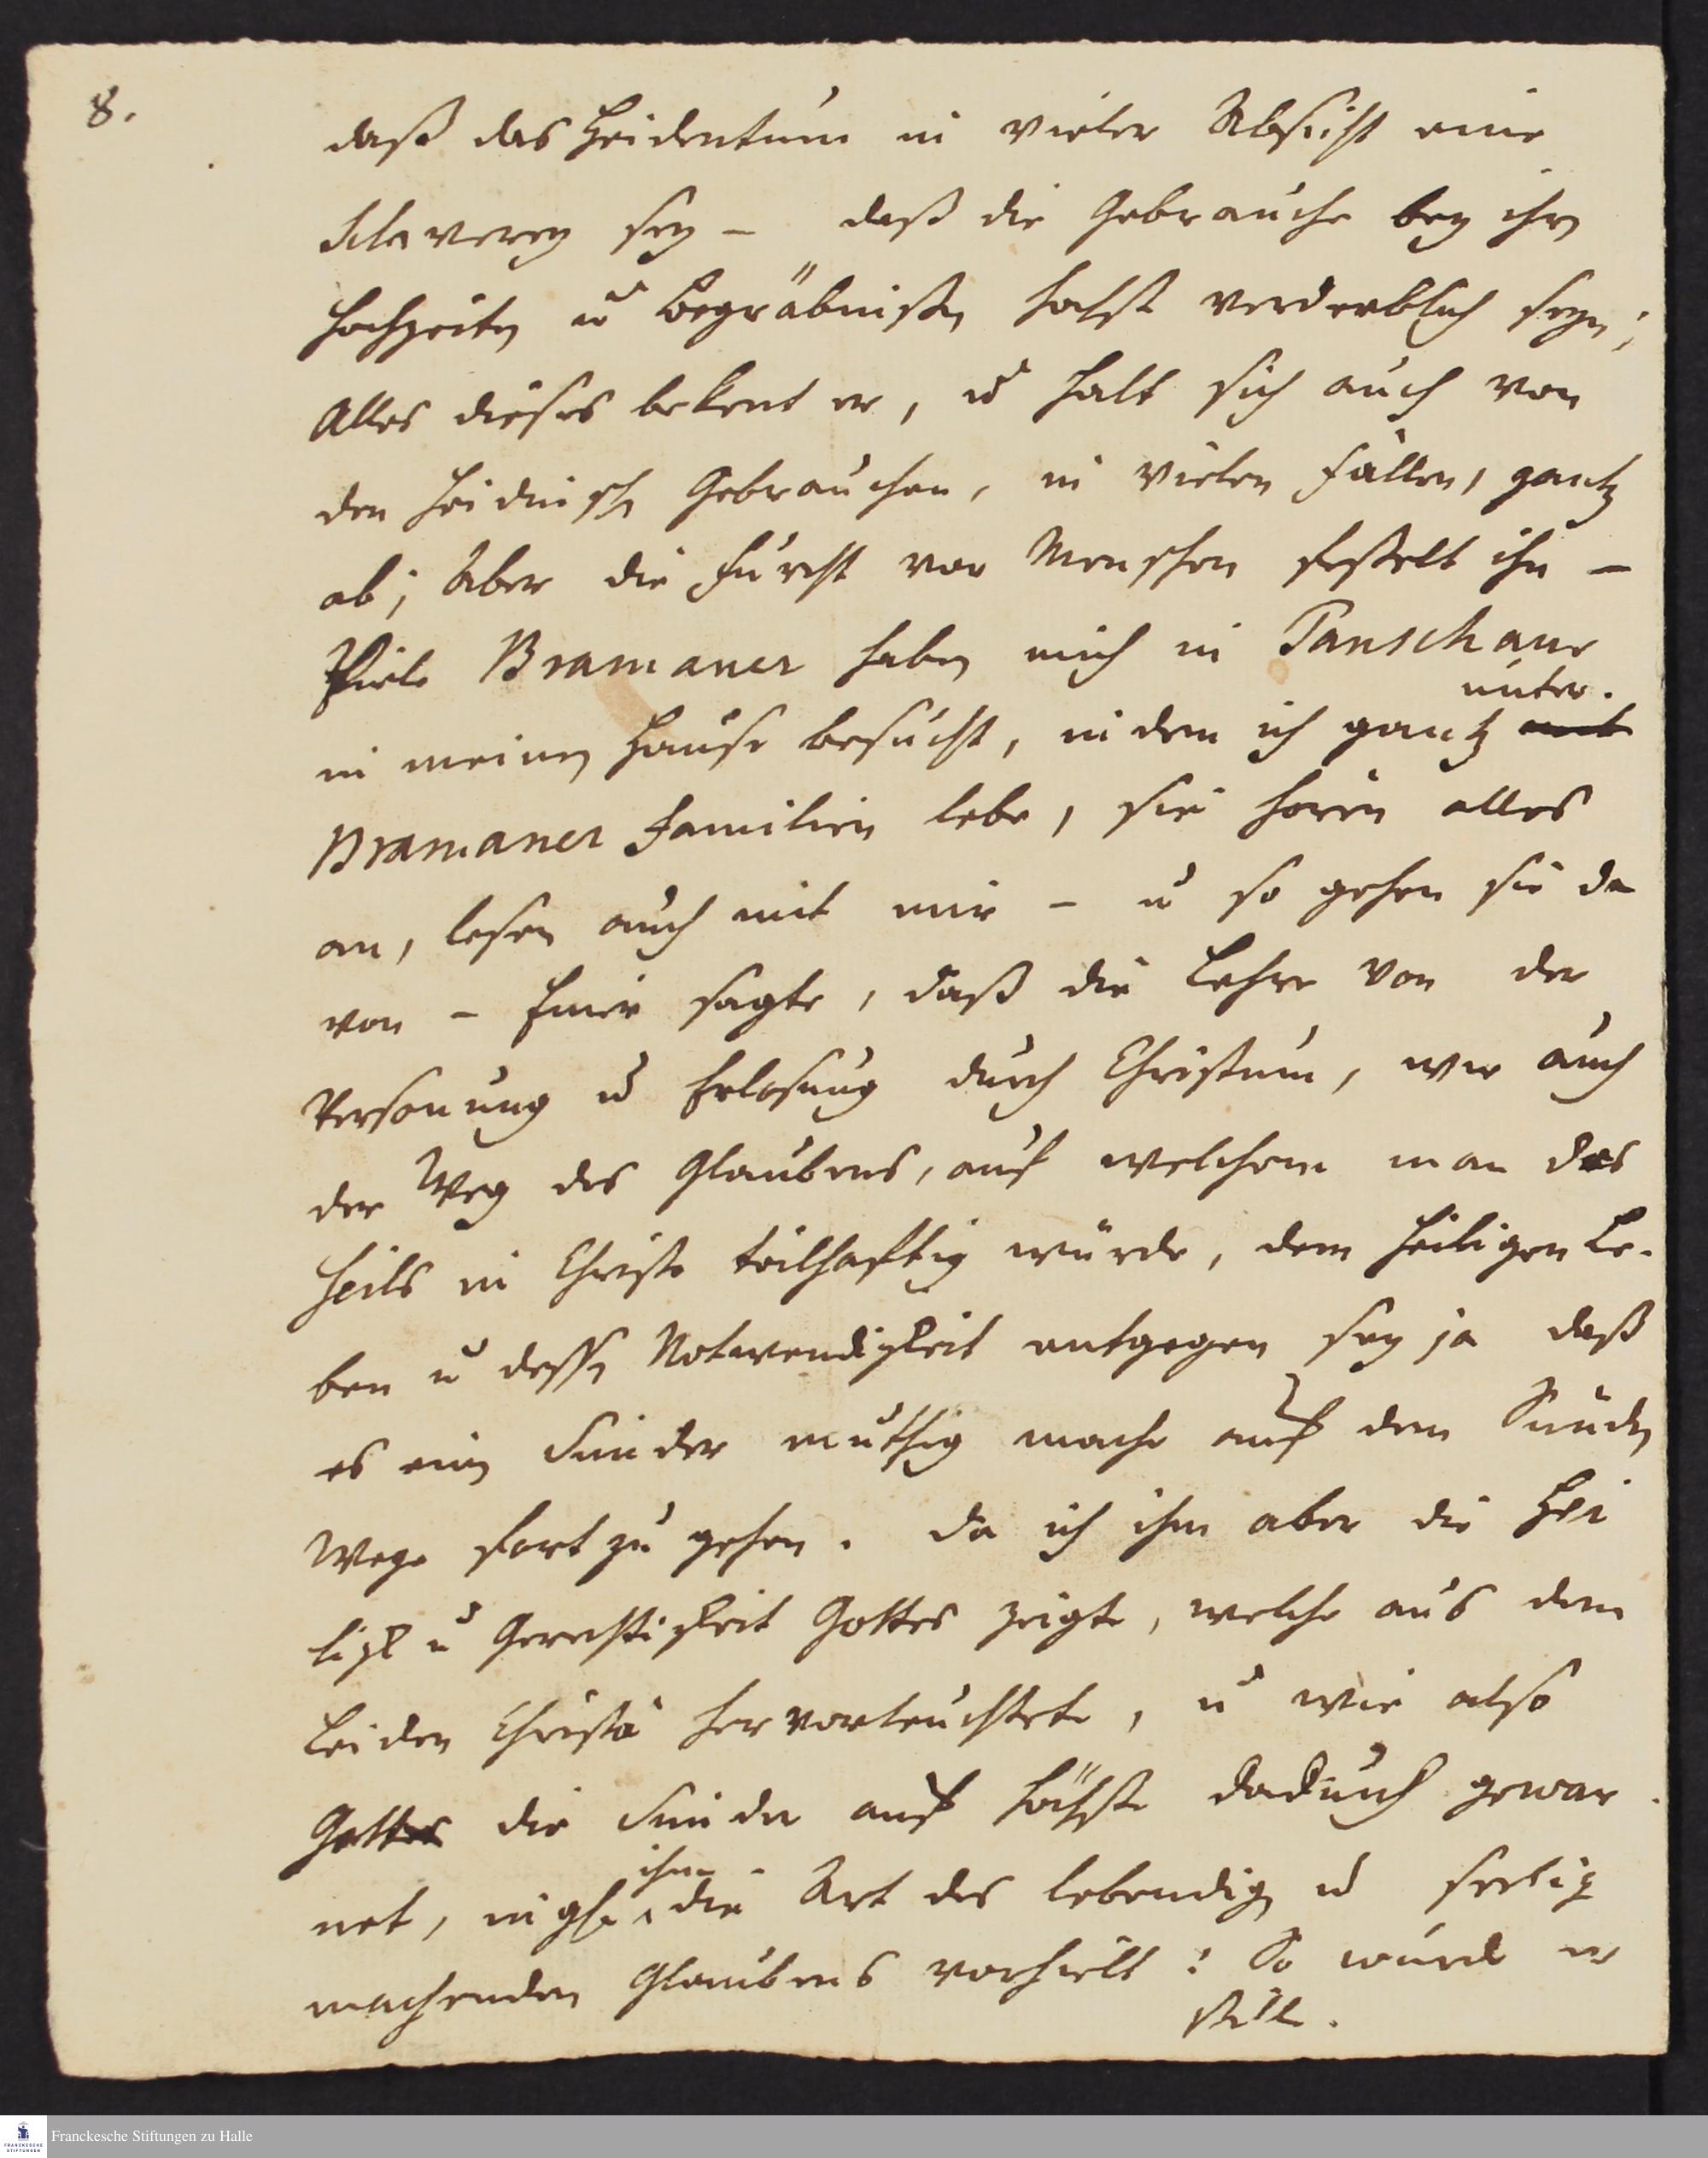 8.
daß das Heidentum in vieler Absicht eine
Sclaverey sey – daß die Gebrauche bey ihrn
Hochzeiten u Begräbnißn hochst verderblich seyn;
Alles dieses bekent er, u halt sich auch von
den heidnischn Gebrauchen, in vielen Fällen, gantz
ab; Aber die Furcht vor Menschen feßelt ihn –
Viele Bramaner haben mich in Tanschaur
in meinen Hause besucht, indem ich gantz unter.
Bramaner Familien lebe, sie hören alles
an, lesen auch mit mir – u so gehen sie da
von – Einer sagte, daß die Lehre von der
Versonung u Erlosung durch Christum, wie auch
der Weg des Glaubens, auf welchem man des
Heils in Christo teilhaftig würde, dem heiligen Le-
ben u dessn Notwendigkeit entgegen sey ja daß
es ein Sunder muthig mache auf dem Sunden
Wege fort zu gehen. Da ich ihm aber die Hei
ligk u Gerechtigkeit Gottes zeigte, welche aus dem
Leiden Christi hervorleuchtete, u wie also
Gott die Sunder aufs höchste dadurch gewar
net, ingl. ihm die Art des lebendig u seelig
machenden Glaubens vorhielt: So wurde er
still.
Franckesche Stiftungen zu Halle
FRANCKESCHE
STIFTUNGEN